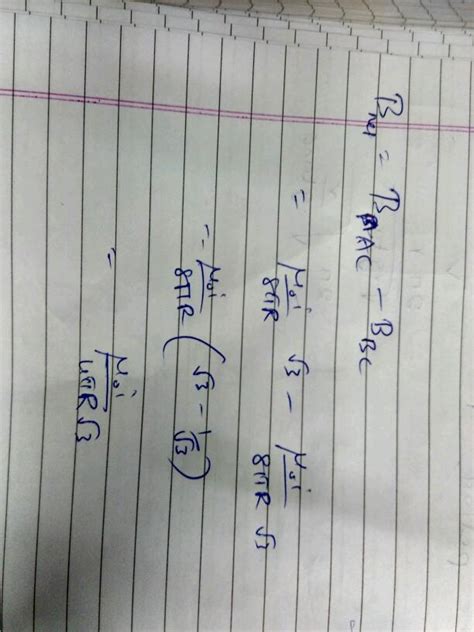 B_net = B_AC - B_BC
= μ₀i/8πR √3 - μ₀i/8πR√3
= μ₀i/8πR (√3 - 1/√3)
= μ₀i/4πR√3